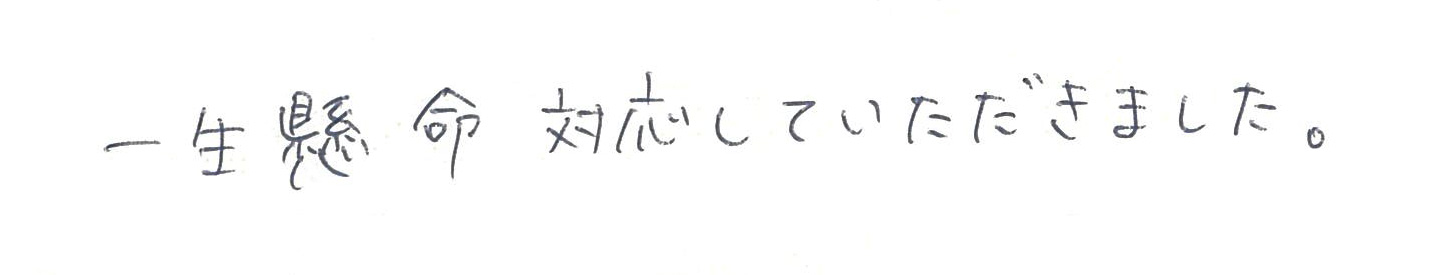 一生懸命対応していただきました。